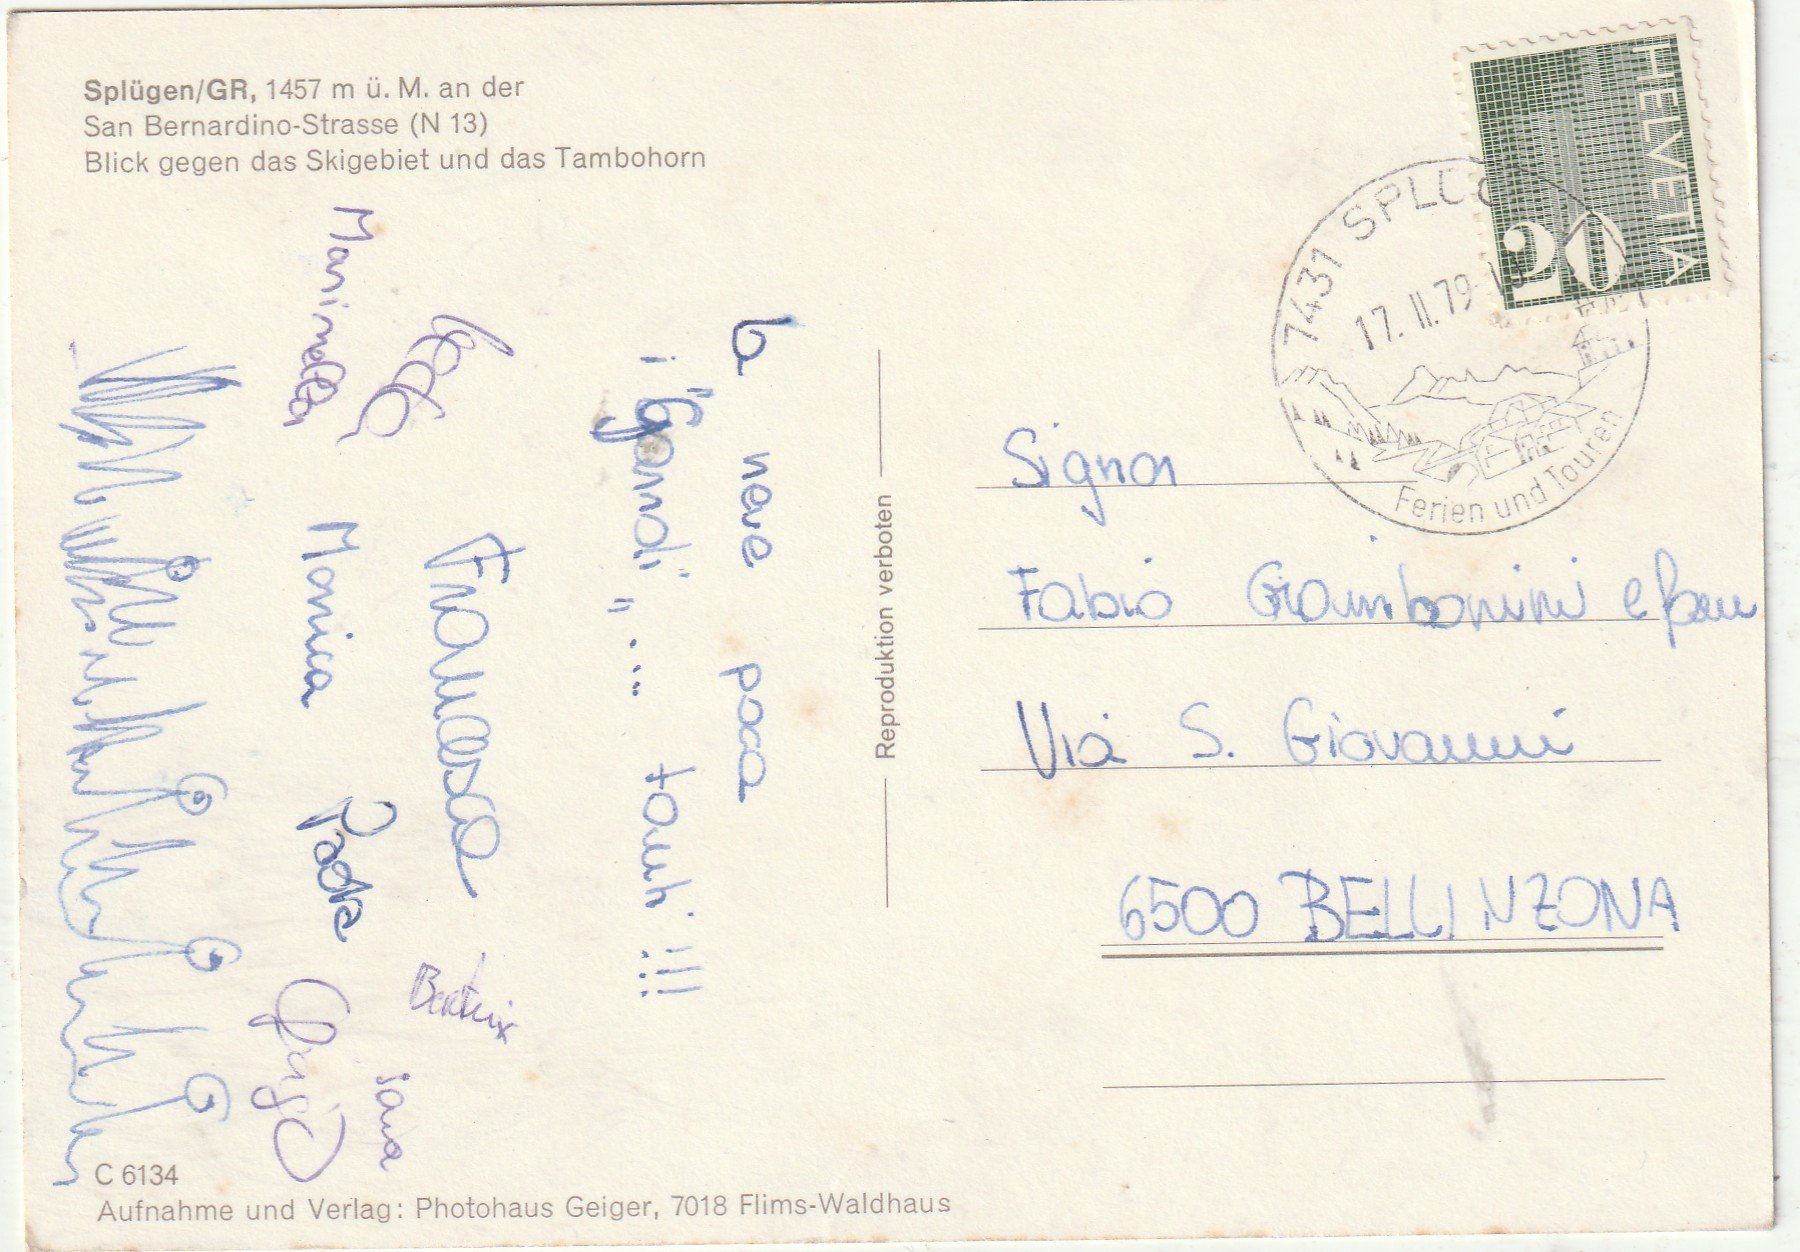 Splügen/GR, 1457 m ü. M. an der
San Bernardino-Strasse (N 13)
Blick gegen das Skigebiet und das Tambohorn
HELVETIA
20
7431 SPLÜG
17. II. 79
Ferien und Touren
la neve poca
i "Ggnoli" ... tanti !!!
Francesca
Beatrix
Sara
Marinella
Monica
Paola
Reproduktion verboten
Signor
Fabio Giambonini e fam
Via S. Giovanni
6500 BELLINZONA
C 6134
Aufnahme und Verlag: Photohaus Geiger, 7018 Flims-Waldhaus